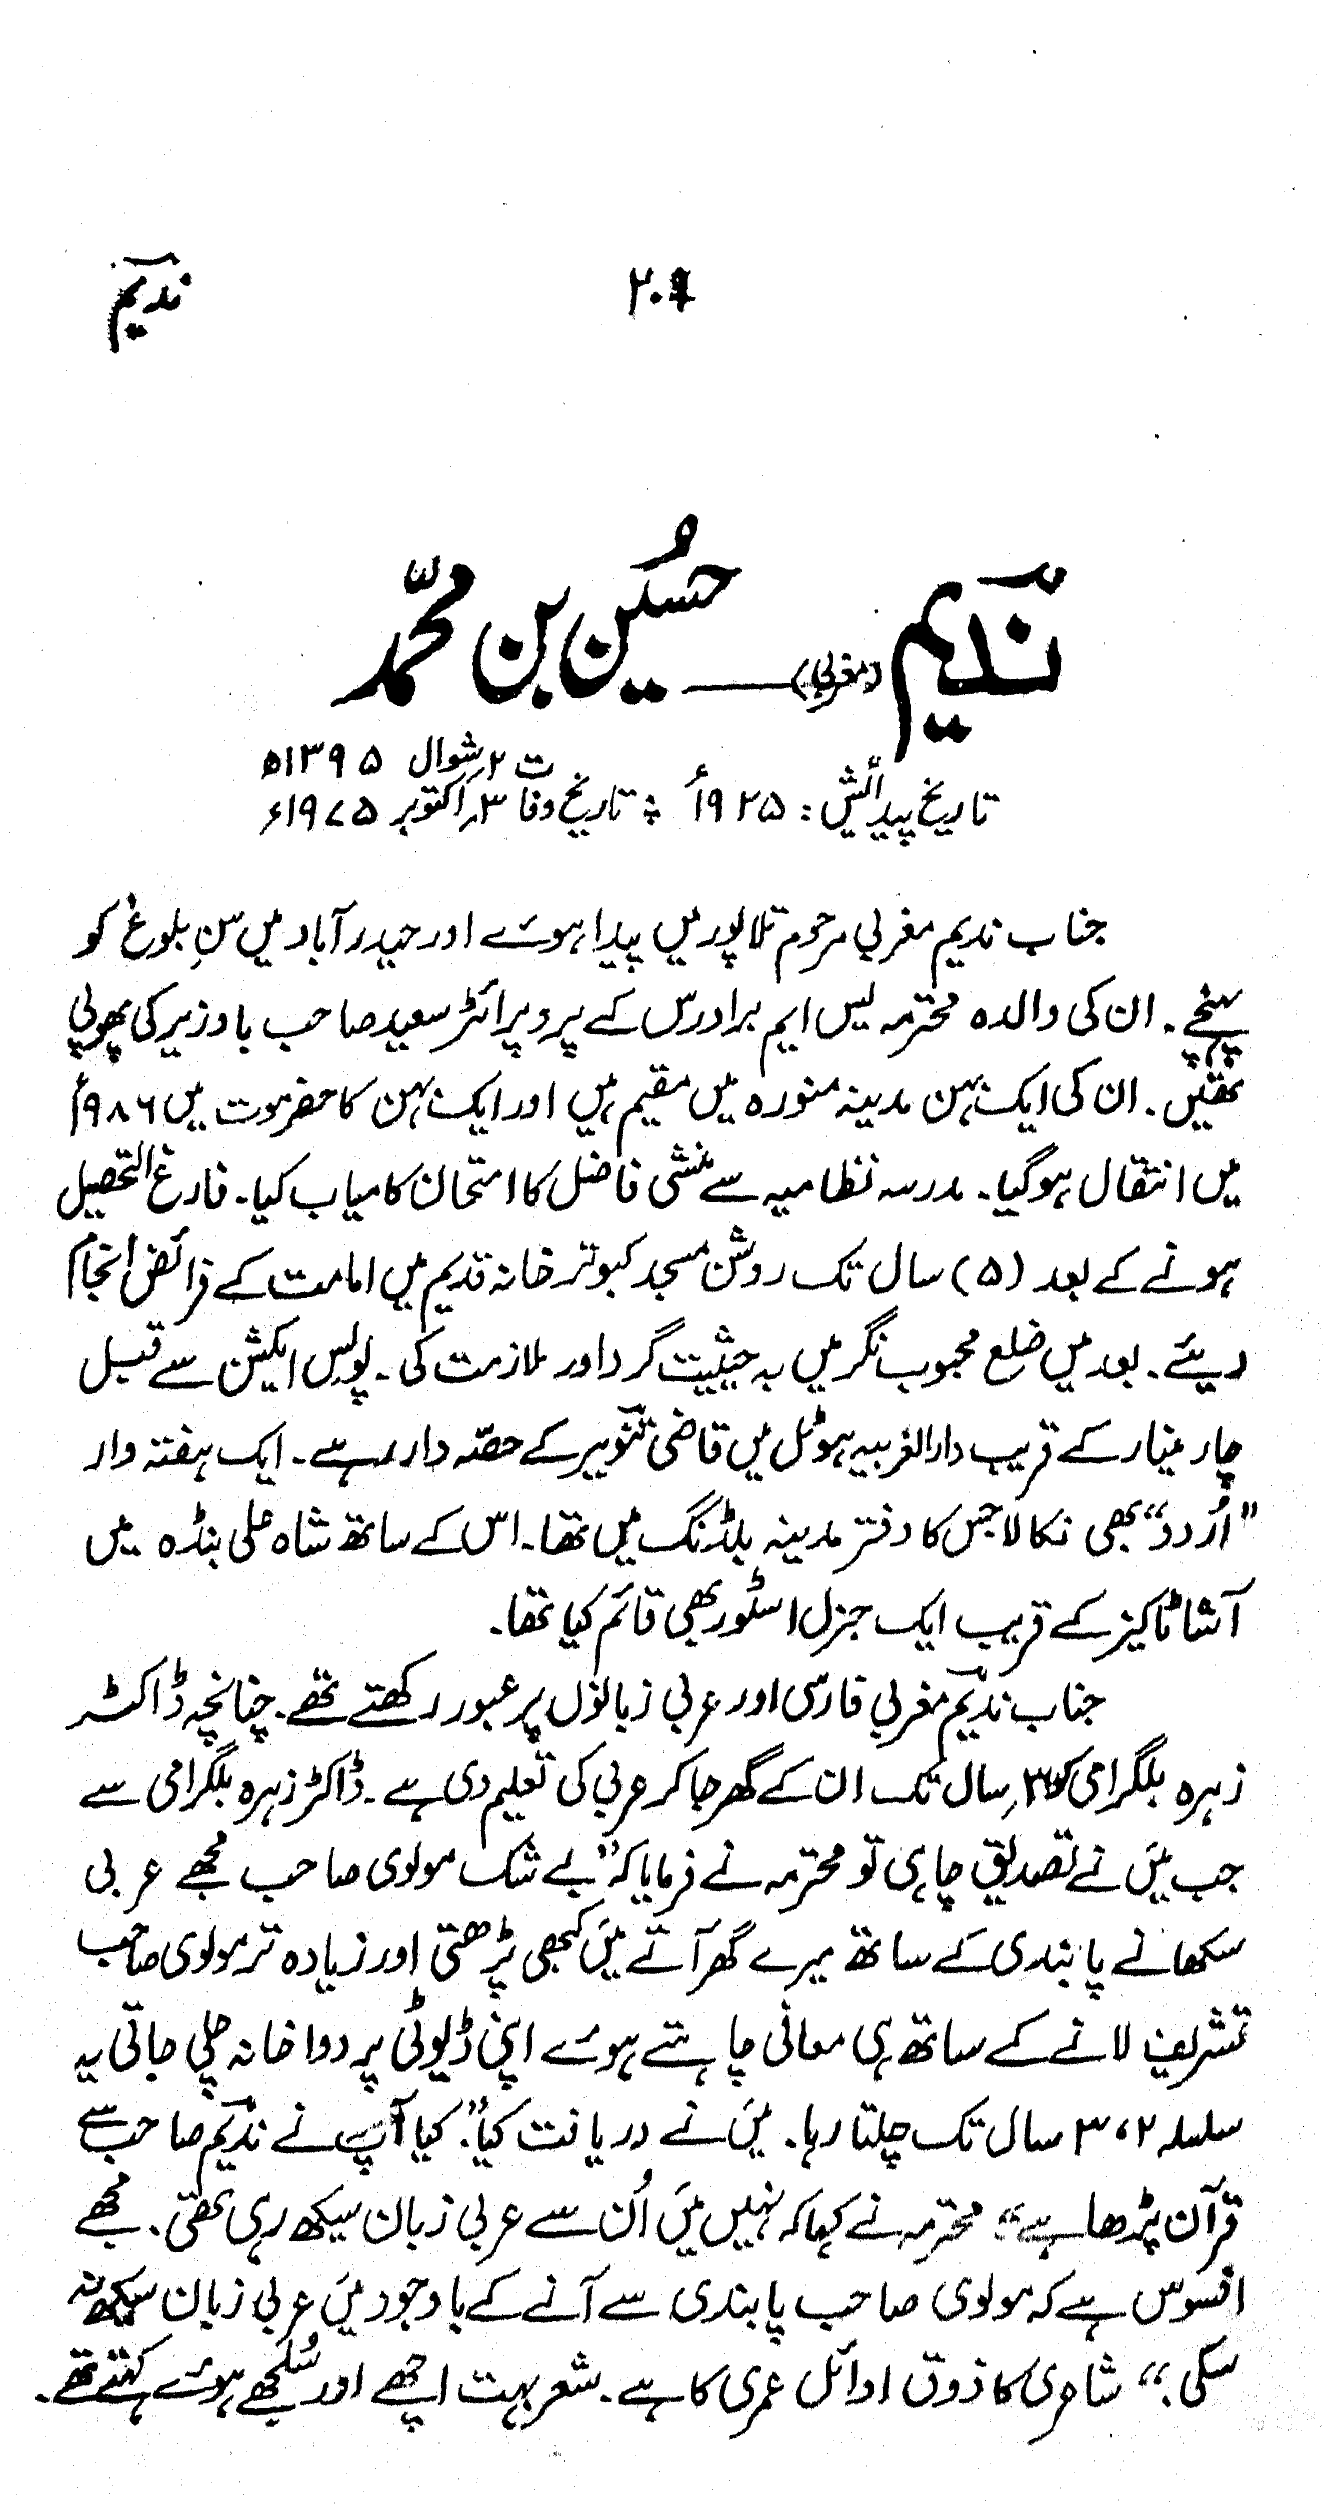 ندیمؔ
ندیمؔ (مغربی) ــــــ حسُین بن محمّد
تاریخ پیدائش : ۱۹۲۵ء ؞ تاریخ وفات ۲؍شوال ۱۳۹۵ھ
۳؍اکتوبر ۱۹۷۵ء
جناب ندیم مغربی مرحوم تلاپور میں پیدا ہوئے اور حیدرآباد میں سنِ بلوغ کو
پہنچے ۔ ان کی والدہ محترمہ یس ایم برادرس کے پروپرائٹر سعید صاحب باوزیر کی پھوپی
تھیں ۔ ان کی ایک بہن مدینہ منورہ میں مقیم ہیں اور ایک بہن کا حضرموت میں ۱۹۸۶ء
میں انتقال ہوگیا ۔ مدرسہ نظامیہ سے منشی فاضل کا امتحان کامیاب کیا ۔ فارغ التحصیل
ہونے کے بعد (۵) سال تک روشن مسجد کبوتر خانہ قدیم میں امامت کے فرائض انجام
دیئے ۔ بعد میں ضلع محبوب نگر میں بہ حیثیت گرداور ملازمت کی ۔ پولیس ایکشن سے قبل
چار مینار کے قریب دارالغربیہ ہوٹل میں قاضی تنویر کے حصّہ دار رہے ۔ ایک ہفتہ وار
"اُردو" بھی نکالا جس کا دفتر مدینہ بلڈنگ میں تھا ۔ اس کے ساتھ شاہ علی بنڈہ میں
آشا ٹاکیز کے قریب ایک جنرل اسٹور بھی قائم کیا تھا ۔
جناب ندیمؔ مغربی فارسی اور عربی زبانوں پر عبور رکھتے تھے ۔ چنانچہ ڈاکٹر
زہرہ بلگرامی کو ۳؍سال تک ان کے گھر جا کر عربی کی تعلیم دی ہے ۔ ڈاکٹر زہرہ بلگرامی سے
جب میں نے تصدیق چاہی تو محترمہ نے فرمایا کہ "بے شک مولوی صاحب مجھے عربی
سکھانے پابندی کے ساتھ میرے گھر آتے میں کبھی پڑھتی اور زیادہ تر مولوی صاحب
تشریف لانے کے ساتھ ہی معافی چاہتے ہوئے اپنی ڈیوٹی پر دواخانہ چلی جاتی یہ
سلسلہ ۲، ۳ سال تک چلتا رہا ۔ میں نے دریافت کیا ". کیا آپ نے ندیمؔ صاحب سے
قرآن پڑھا ہے" محترمہ نے کہا کہ نہیں میں اُن سے عربی زبان سیکھ رہی تھی ۔ مجھے
افسوس ہے کہ مولوی صاحب پابندی سے آنے کے باوجود میں عربی زبان سیکھ نہ
سکی ۔" شاعری کا ذوق اوائل عمری کا ہے ۔ شعر بہت اچھے اور سُلجھے ہوئے کہتے تھے ۔